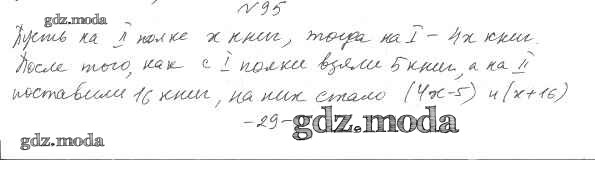 №95
gdz.moda
Пусть на II полке x книг, тогда на I - 4x книг.
После того, как с I полки взяли 5 книг, а на II
поставили 16 книг, на них стало (4x-5) и (x+16)
-29-
gdz.moda
gdz.moda